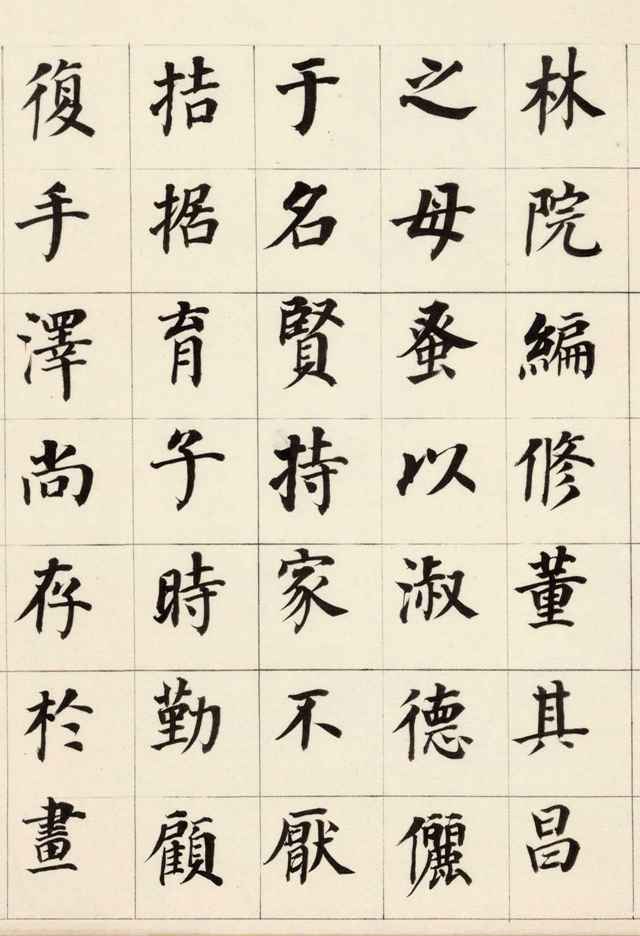 林院編修董其昌
之母蚤以淑德儷
于名賢持家不厭
拮据育子時勤顧
復手澤尚存於畫